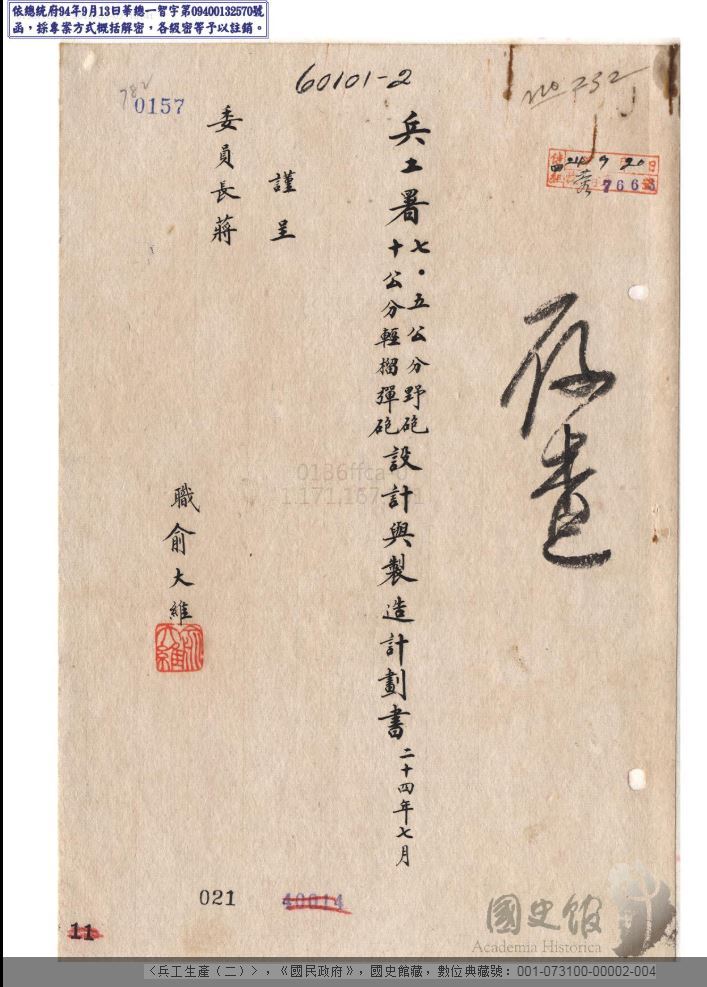 依總統府94年9月13日華總一智字第09400132570號
函，採專案方式概括解密，各級密等予以註銷。
60101-2
782
0157
no 232
24 7 20
766
存查
兵工署七・五公分野砲
十公分輕榴彈砲
設計與製造計劃書
二十四年七月
謹呈
委員長蔣
職俞大維
俞大維
0136ffca
1.171.167
021
40014
11
國史館
Academia Historica
〈兵工生產（二）〉，《國民政府》，國史館藏，數位典藏號：001-073100-00002-004